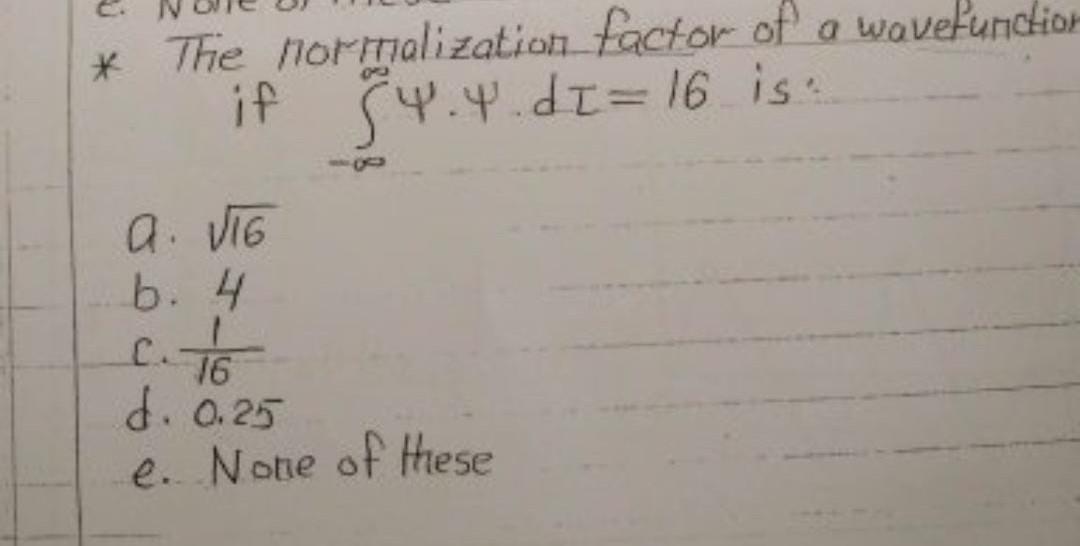 e. None of
* The normalization factor of a wavefunction
if ∫ψ.ψ.dτ = 16 is:
∞
-∞
a. √16
b. 4
c. 1/16
d. 0.25
e. None of these